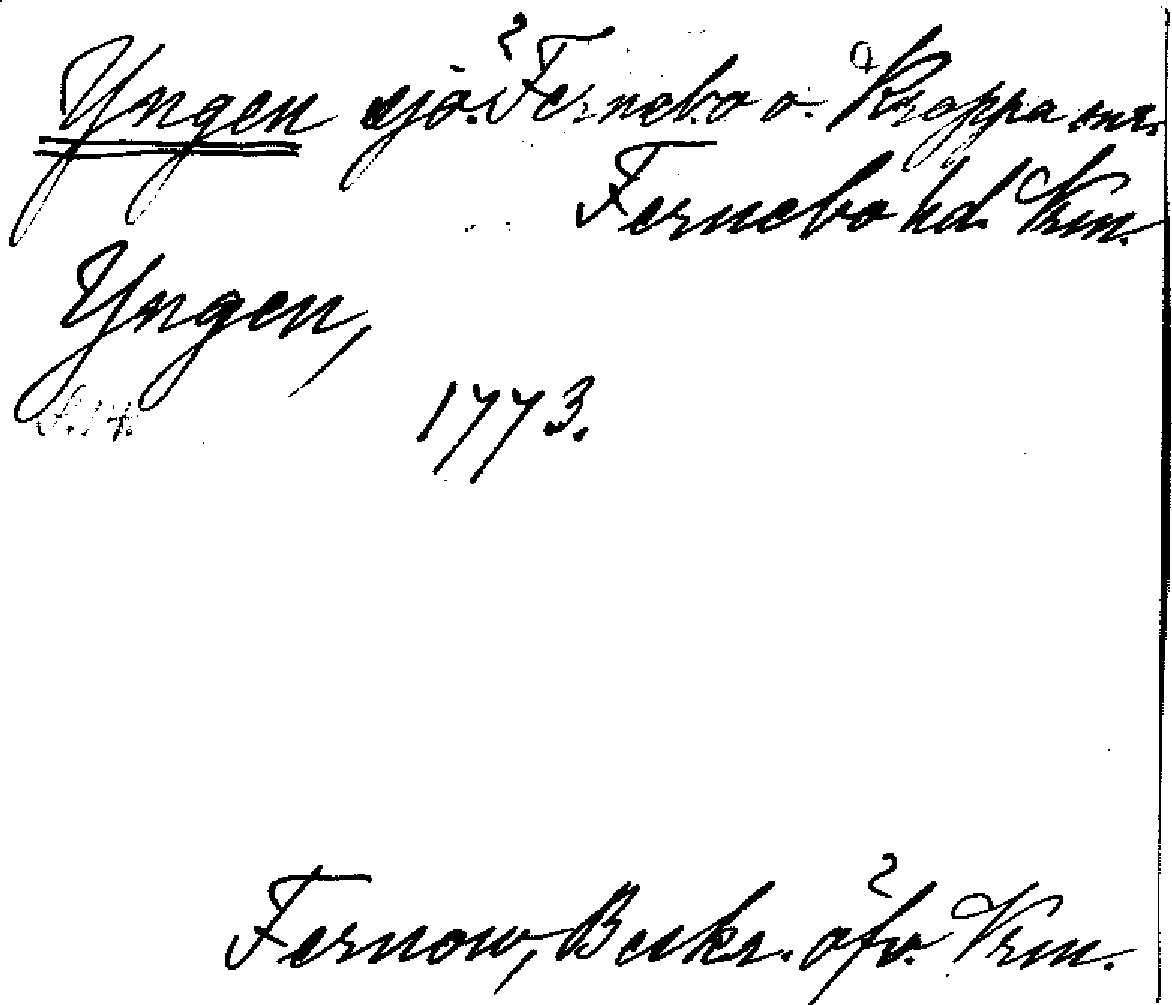 Yngen sjö. Fernebo o. Kroppa snr.
Fernebo hd. Vrm.
Yngen,
1773.
Fernow, Beskr. öfv. Vrm.